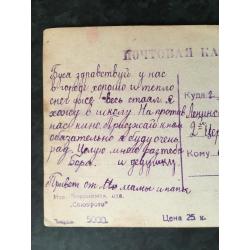 ПОЧТОВАЯ КА
Буса здравствуй у нас
в городе хорошо и тепло
снег уже весь стаял я
хожу в школу. На против
нас кино. Приезжай к нам
обязательно я буду очень
рад. Целую много раз тебя
Бора. и дедушку
Привет от мамы и папы
Куда
Ленинс
2
Кому
Изд.
"Союзфото"
Тираж 5000.
Цена 25 к.